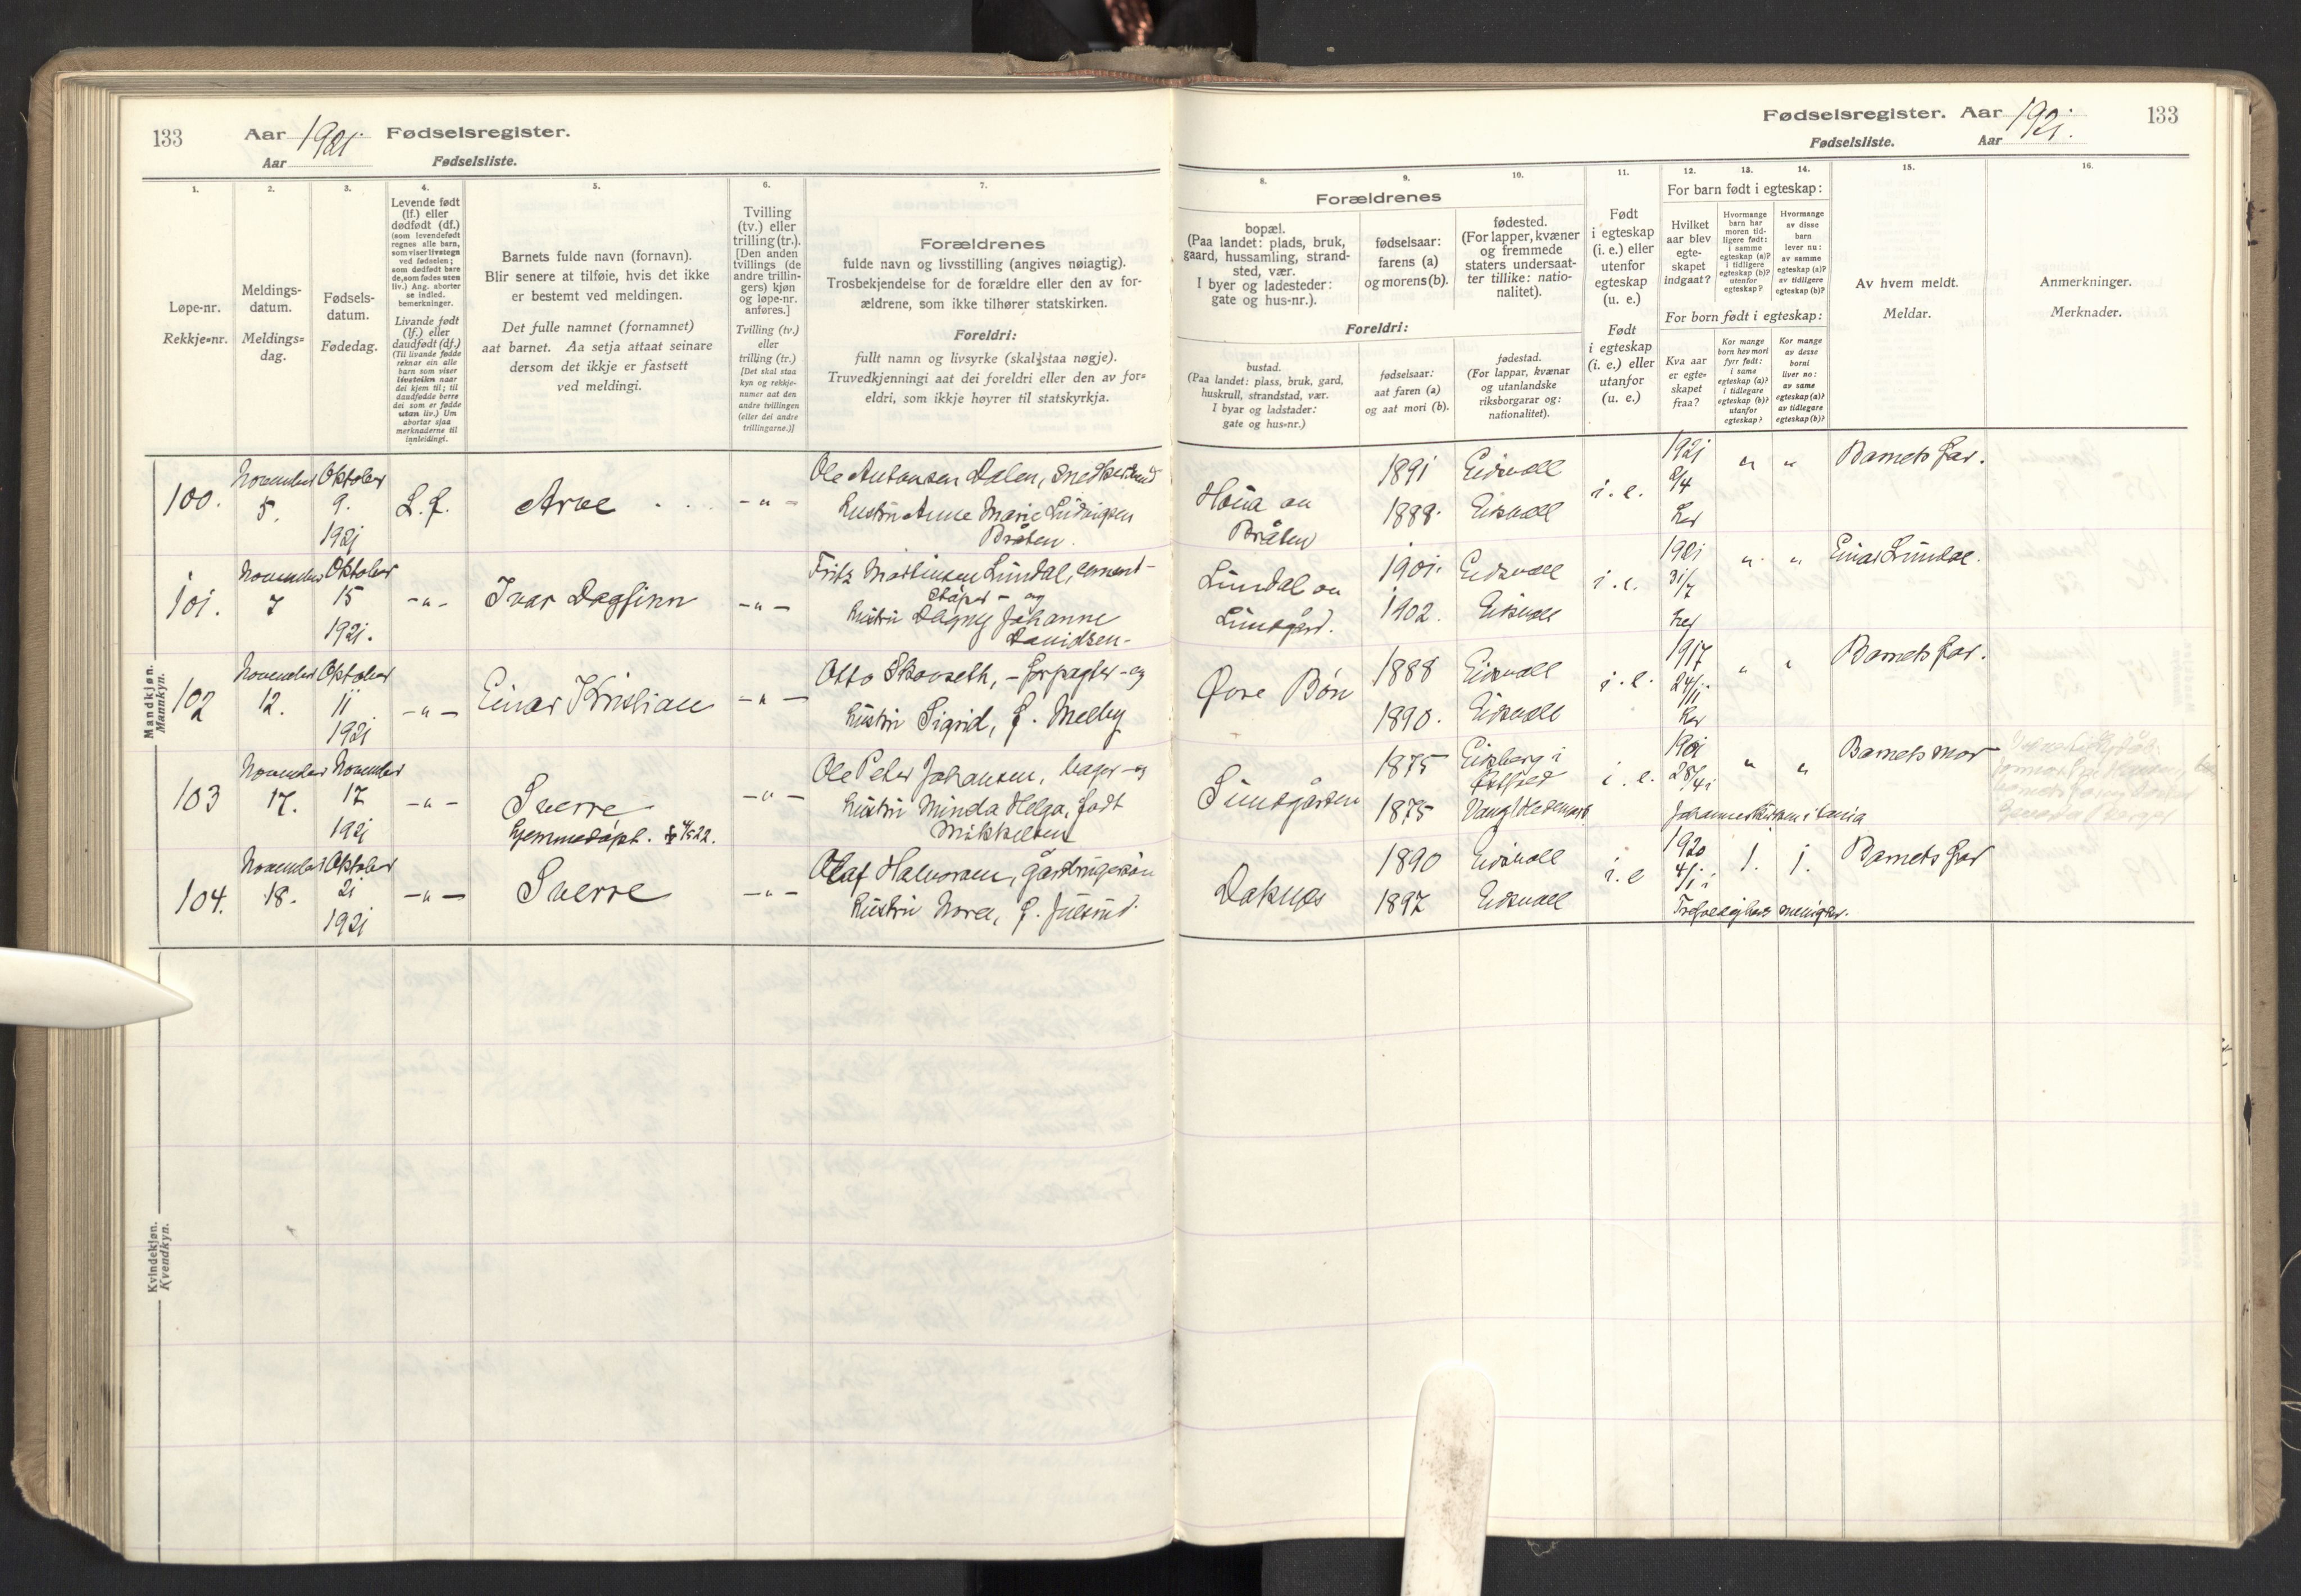 133 Aar 1921 Fødselsregister.
Aar Fødselsliste.
1.
2.
3.
4.
5.
6.
7.
Løpe-nr.
Rekkje=nr.
Meldings-
datum.
Meldings=
dag.
Fødsels-
datum.
Fødedag.
Levende født
(lf.) eller
dødfødt (df.)
(som levendefødt
regnes alle barn,
som viser livstegn
ved fødselen;
som dødfødt bare
de, som fødes uten
liv.) Ang. aborter
se indled.
bemerkninger.
Livande født
(lf.) eller
daudfødt (df.)
(Til livande fødde
reknar ein alle
barn som viser
livsteikn naar
dei kjem til; til
daudfødde berre
dei som er fødde
utan liv.) Um
abortar sjaa
merknaderne til
innleidingi.
Barnets fulde navn (fornavn).
Blir senere at tilføie, hvis det ikke
er bestemt ved meldingen.
Det fulle namnet (fornamnet)
aat barnet. Aa setja attaat seinare
dersom det ikkje er fastsett
ved meldingi.
Tvilling
(tv.) eller
trilling (tr.).
[Den anden
tvillings (de
andre trillin-
gers) kjøn
og løpe-nr.
anføres.]
Tvilling (tv.)
eller
trilling (tr.)
[Det skal staa
kyn og rekkje-
numer aat den
andre tvillingen
(eller dei andre
trillingarne.)]
Forældrenes
fulde navn og livsstilling (angives nøiagtig).
Trosbekjendelse for de forældre eller den av for-
ældrene, som ikke tilhører statskirken.
Foreldri:
fullt namn og livsyrke (skal staa nøgje).
Truvedkjenningi aat dei foreldri eller den av for=
eldri, som ikkje høyrer til statskyrkja.
Mandkjøn.
Mannkyn.
100.
November
5.
Oktober
9.
1921
L.f.
Arve
-"-
Ole Antonsen Dalen,
Hustru Anne Marie Ludvigsen
Bråten.
101.
November
7
Oktober
15
1921.
-"-
Ivar Dagfinn
-"-
Fritz Martinsen Lundal, cement-
støper - og
Hustru Dagny Johanne
Davidsen-
102
November
12.
Oktober
11
1921
-"-
Einar Kristian
-"-
Otto Skovseth, - forpagter - og
Hustru Sigrid, f. Melby
103
November
17.
November
17
1921
-"-
Sverre
Hjemmedøpt.
-"-
Ole Peter Johansen, bager - og
Hustru Minda Helga, født
Mikkelsen
104.
November
18.
Oktober
21
1921
-"-
Sverre
-"-
Olaf Halvorsen,
Hustru Nora, f. Julsrud.
Kvindekjøn.
Kvendkyn.
Fødselsregister. Aar 1921. 133
Fødselsliste. Aar
8.
9.
10.
11.
12.
13.
14.
15.
16.
Forældrenes
bopæl.
(Paa landet: plads, bruk,
gaard, hussamling, strand-
sted, vær.
I byer og ladesteder:
gate og hus-nr.).
fødselsaar:
farens (a)
og morens (b).
fødested.
(For lapper, kvæner
og fremmede
staters undersaat-
ter tillike: natio-
nalitet).
Foreldri:
bustad.
(Paa landet: plass, bruk, gard,
huskrull, strandstad, vær.
I byar og ladstader:
gate og hus=nr.)
fødselsaar:
aat faren (a)
og aat mori (b).
fødestad.
(For lappar, kvænar
og utanlandske
riksborgarar og:
nationalitet).
Født
i egteskap
(i. e.) eller
utenfor
egteskap
(u. e.)
Født
i egteskap
(i. e.) eller
utanfor
(u. e.)
For barn født i egteskap:
Hvilket
aar blev
egte-
skapet
indgaat?
Hvormange
barn har
moren tid-
ligere født:
i samme
egteskap (a)?
i tidligere
egteskap (b)?
utenfor
egteskap?
Hvormange
av disse
barn
lever nu:
av samme
egteskap (a)?
av tidligere
egteskap (b)?
For born født i egteskap:
Kva aar
er egte-
skapet
fraa?
Kor mange
born hev mori
fyrr født:
i same
egteskap (a)?
i tidlegare
egteskap (b)?
utanfor
egteskap?
Kor mange
av desse
borni
liver no:
av same
egteskap (a)?
av tidlegare
egteskap (b)?
Av hvem meldt.
Meldar.
Anmerkninger.
Merknader.
Bråten
1891
1888.
Eidsvoll
Eidsvoll
i. e.
1921
2/4
her
" "
Barnets far.
Lundal
1901.
1902.
Eidsvoll
Eidsvoll
i. e.
1921
31/7
her
" "
Einar Lundal.
Øvre Bøn
1888
1890.
Eidsvoll
Eidsvoll
i. e.
1917
her
" "
Barnets far.
Sundgården
1875
1875
Eidsberg i
Østfold
Vang Hedemark
i. e.
1901
" "
Barnets mor
Daknes
1890
1897
Eidsvoll
Eidsvoll
i. e
1920
1. 1.
Barnets far